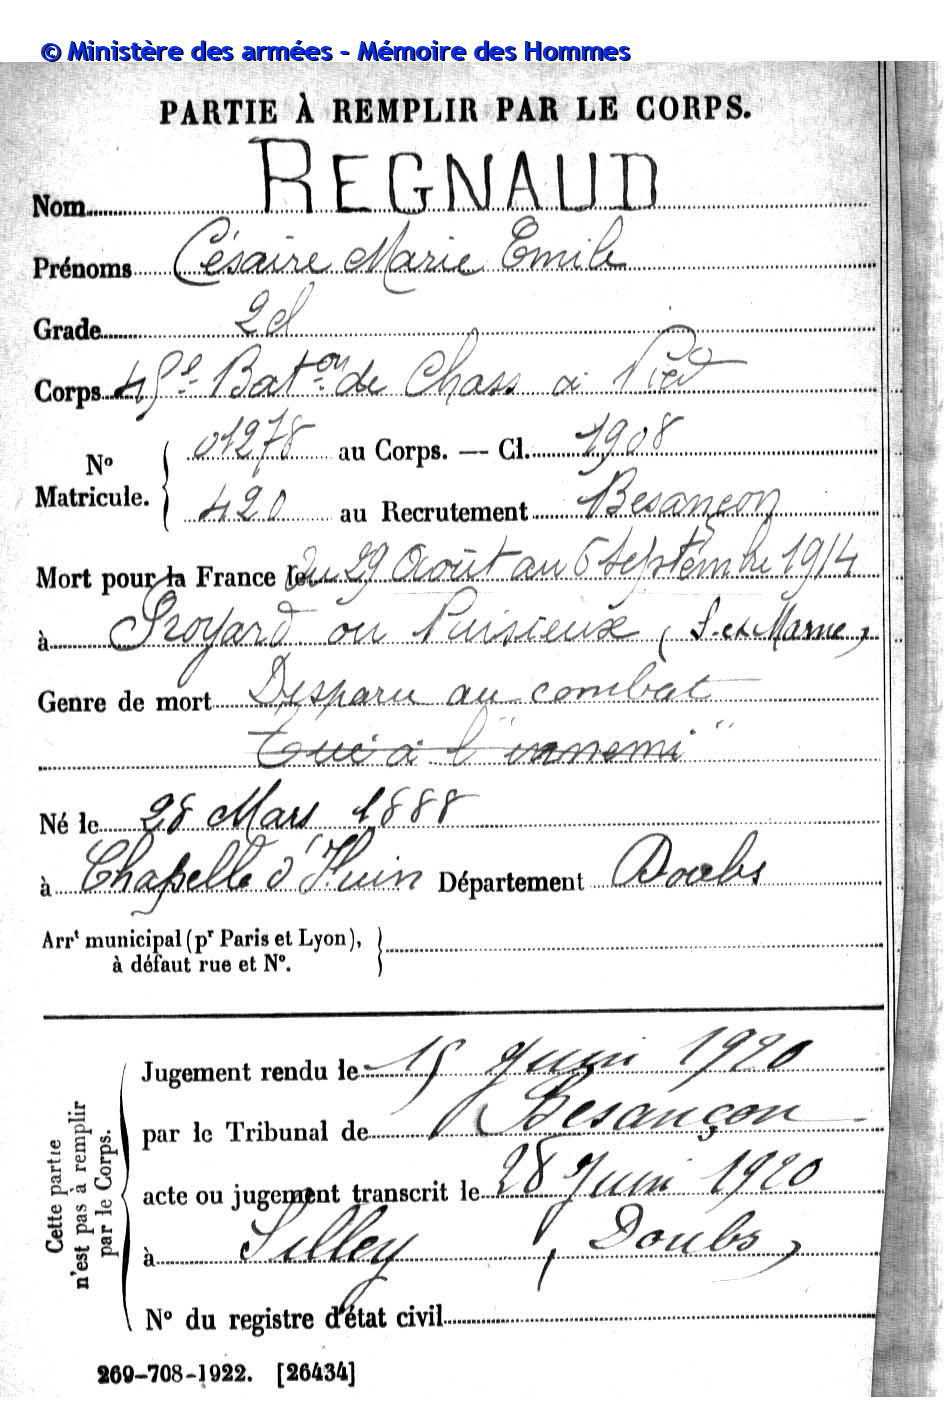 © Ministère des armées - Mémoire des Hommes
PARTIE À REMPLIR PAR LE CORPS.
Nom REGNAUD
Prénoms Césaire Marie Emile
Grade 2 cl
Corps 45e Baton de Chass à Pied
No Matricule. 01278 au Corps. — Cl. 1908
420 au Recrutement Besançon
Mort pour la France le du 29 Août au 6 Septembre 1914
à Proyard ou Puisieux (S. et Marne)
Genre de mort Disparu au combat
Tué à l'"ennemi"
Né le 28 Mars 1888
à Chapelle d'Huin Département Doubs
Arrt municipal (pr Paris et Lyon),
à défaut rue et No.
Cette partie
n'est pas à remplir
par le Corps.
Jugement rendu le 15 Juin 1920
par le Tribunal de Besançon
acte ou jugement transcrit le 28 Juin 1920
à Silley (Doubs)
No du registre d'état civil
269-708-1922. [26434]